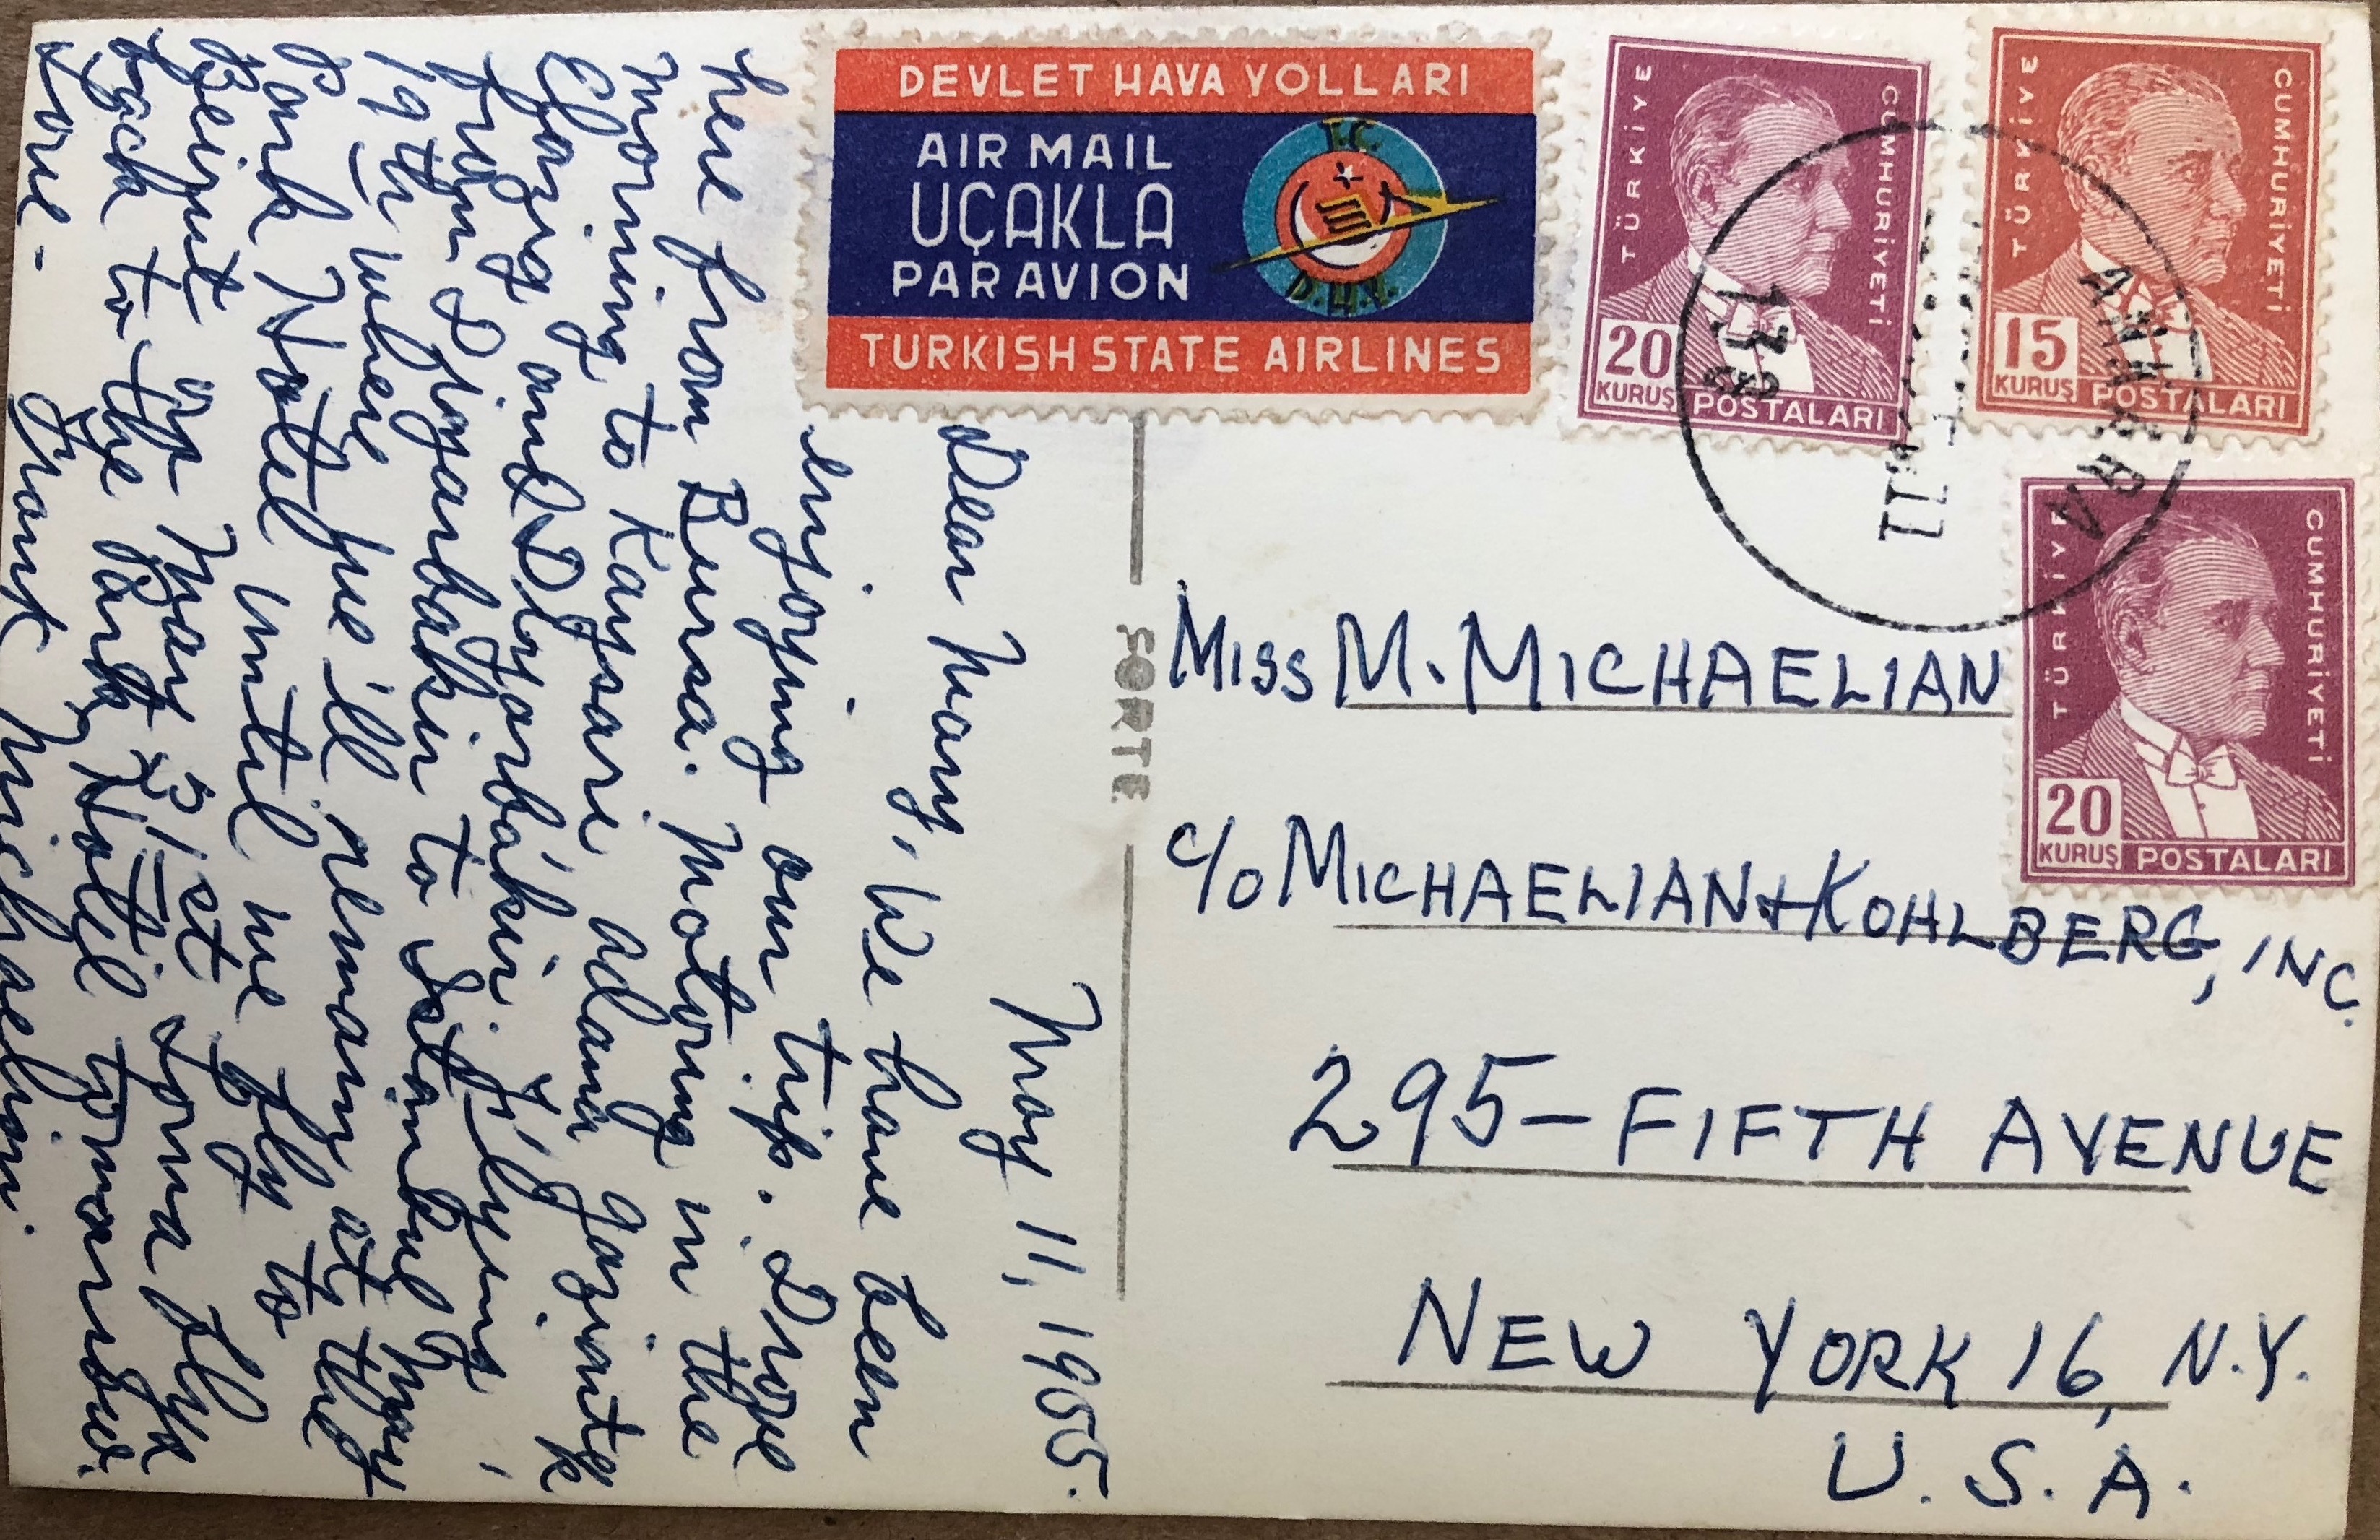 DEVLET HAVA YOLLARI
AIR MAIL
UÇAKLA
PAR AVION
TURKISH STATE AIRLINES
T.C.
D.H.Y.
TÜRKİYE CUMHURİYETİ
20
KURUŞ POSTALARI
TÜRKİYE CUMHURİYETİ
15
KURUŞ POSTALARI
TÜRKİYE CUMHURİYETİ
20
KURUŞ POSTALARI
ANKARA
13
May 11, 1955.
Dear Mary, We have been
enjoying our trip. Drove
here from Bursa. Motoring in the
morning to Kaysari adana gaziantep
Elazig and Diyarbakir. I'll
from Diyarbakir to Istanbul May
19th where we'll remain at the
Park Hotel until we fly to
Beirut on May 31st
back to the Park Hotel tomorrow.
Love - Frank Michaelian.
SORTE
MISS M. MICHAELIAN
C/O MICHAELIAN + KOHLBERG, INC.
295 - FIFTH AVENUE
NEW YORK 16, N.Y.
U. S. A.